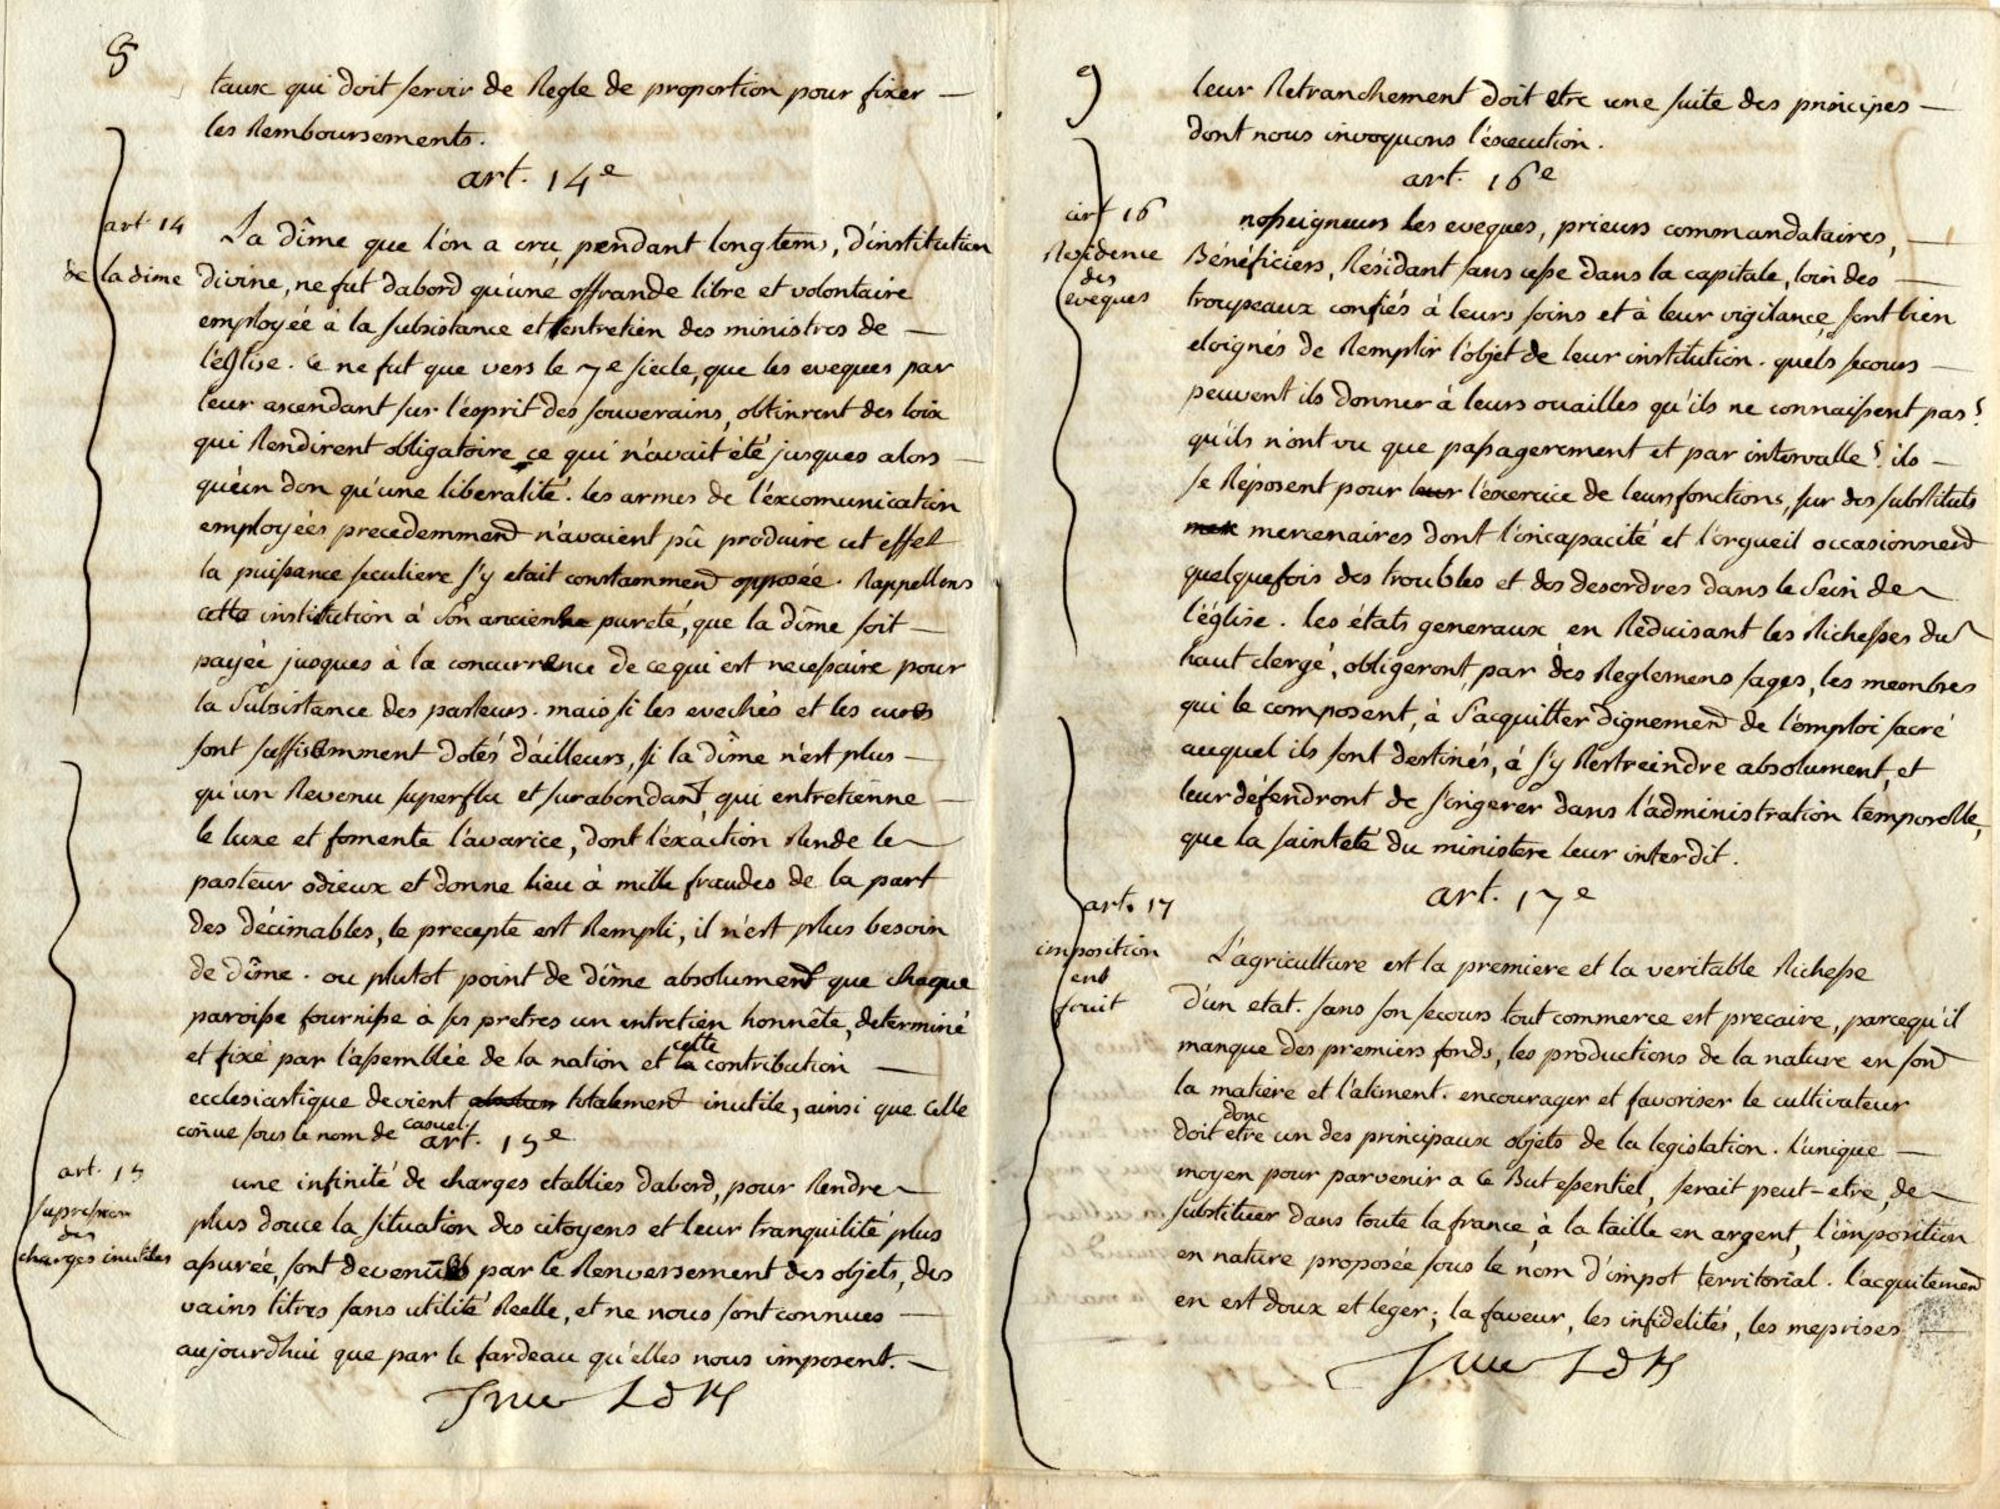 8
taux qui doit servir de Regle de proportion pour fixer —
les Remboursements.
art. 14e
art. 14
de la dime
La dîme que l'on a cru, pendant longtems, d'institution
divine, ne fut dabord qu'une offrande libre et volontaire
employée à la subsistance et l'entretien des ministres de —
l'église. Ce ne fut que vers le 7e siecle, que les eveques par
leur ascendant sur l'esprit des souverains, obtinrent des loix
qui Rendirent obligatoire ce qui n'avait été jusques alors —
qu'un don qu'une liberalité. les armes de l'excomunication
employées precedemment n'avaient pû produire cet effet
la puissance seculiere s'y etait constamment opposée. Rappellons
cette institution à son ancienne pureté, que la dîme soit —
payée jusques à la concurrence de ce qui est necessaire pour
la Subsistance des pasteurs. mais si les evechés et les cures
sont suffisamment dotés d'ailleurs, si la dîme n'est plus —
qu'un Revenu superflu et surabondant, qui entretienne —
le luxe et fomente l'avarice, dont l'éxaction Rende le
pasteur odieux et donne lieu à mille fraudes de la part
des décimables, le precepte est Rempli, il n'est plus besoin
de dîme. ou plutot point de dîme absolument que chaque
paroisse fournisse à ses pretres un entretien honnête, determiné
et fixé par l'assemblée de la nation et cette contribution —
ecclesiastique devient totalement inutile, ainsi que celle
coñue sous le nom de casuel.
art. 15e
art. 15
supression
des
charges inutiles
une infinité de charges etablies dabord, pour Rendre
plus douce la situation des citoyens et leur tranquilité plus
assurée, sont devenues par le Renversement des objets, des
vains titres sans utilité Reelle, et ne nous sont connues —
aujourdhui que par le fardeau qu'elles nous imposent. —
9
leur Retranchement doit etre une suite des principes —
dont nous invoquons l'éxecution.
art. 16e
art 16
Residence
des
eveques
nosseigneurs les eveques, prieurs commandataires, —
Bénéficiers, Résidant sans cesse dans la capitale, loin des —
troupeaux confiés à leurs soins et à leur vigilance, sont bien
eloignés de Remplir l'objet de leur institution. quels secours —
peuvent ils donner à leurs ouailles qu'ils ne connaissent pas?
qu'ils n'ont vu que passagerement et par intervalle? ils —
se Réposent pour leur l'exercice de leurs fonctions, sur des substituts
mer mercenaires dont l'incapacité et l'orgueil occasionnent
quelquefois des troubles et des desordres dans le Sein de
l'église. les états generaux en Réduisant les Richesses du
haut clergé, obligeront par des Reglemens sages, les membres
qui le composent, à S'acquitter dignement de l'emploi sacré
auquel ils sont destinés, à s'y Restreindre absolument, et
leur défendront de s'ingerer dans l'administration temporelle,
que la sainteté du ministere leur interdit.
art. 17e
art. 17
imposition
en
fruit
L'agriculture est la premiere et la veritable Richesse
d'un etat. sans son secours tout commerce est precaire, parcequ'il
manque des premiers fonds, les productions de la nature en sont
la matiere et l'aliment. encourager et favoriser le cultivateur
doit donc etre un des principaux objets de la legislation. l'unique —
moyen pour parvenir a ce But essentiel, serait peut-etre, de
substituer dans toute la france, à la taille en argent, l'imposition
en nature proposée sous le nom d'impot territorial. l'acquitement
en est doux et leger; la faveur, les infidelités, les meprises —